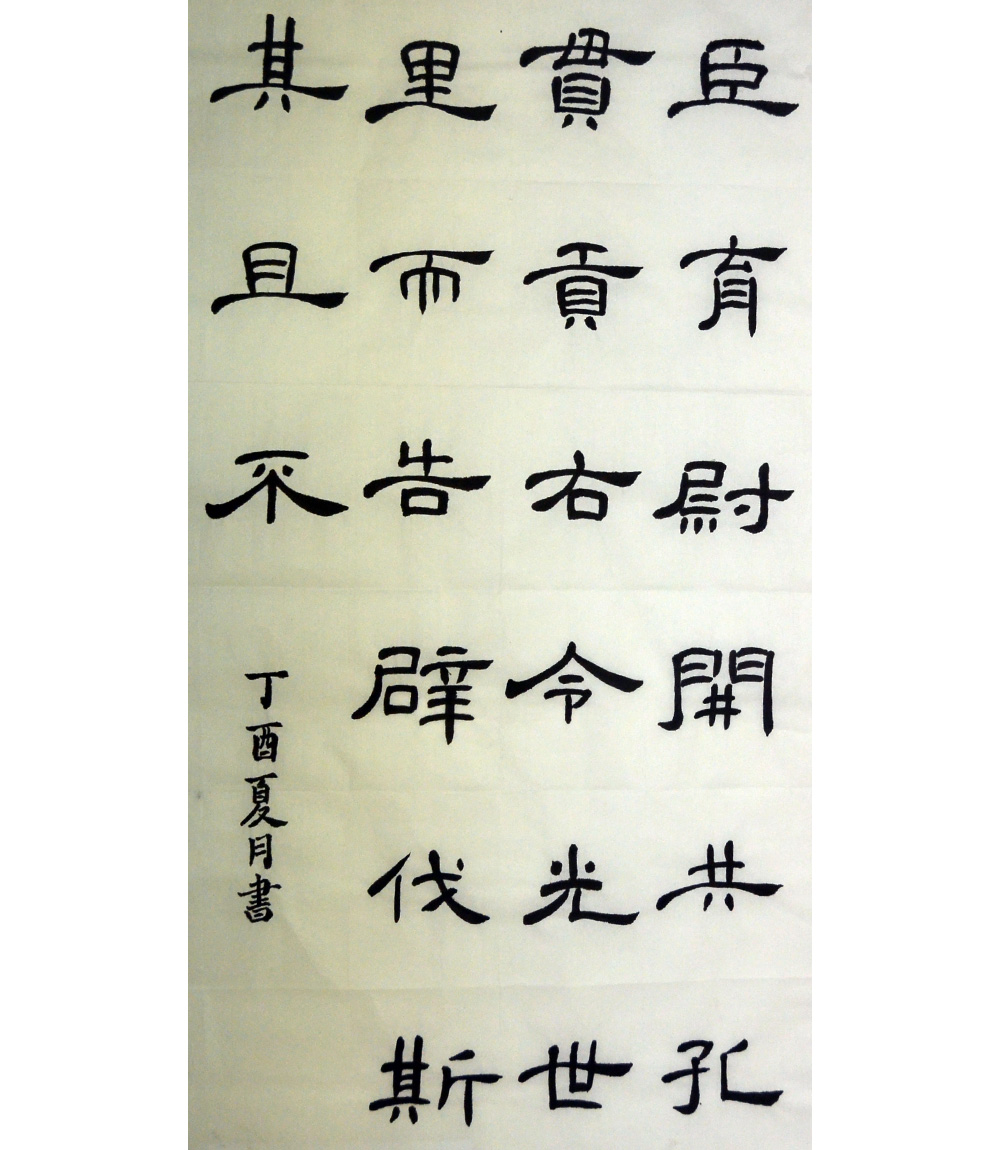 臣育尉開共孔
貫貢右令光世
里而告辟伐斯
其且不
丁酉夏月書